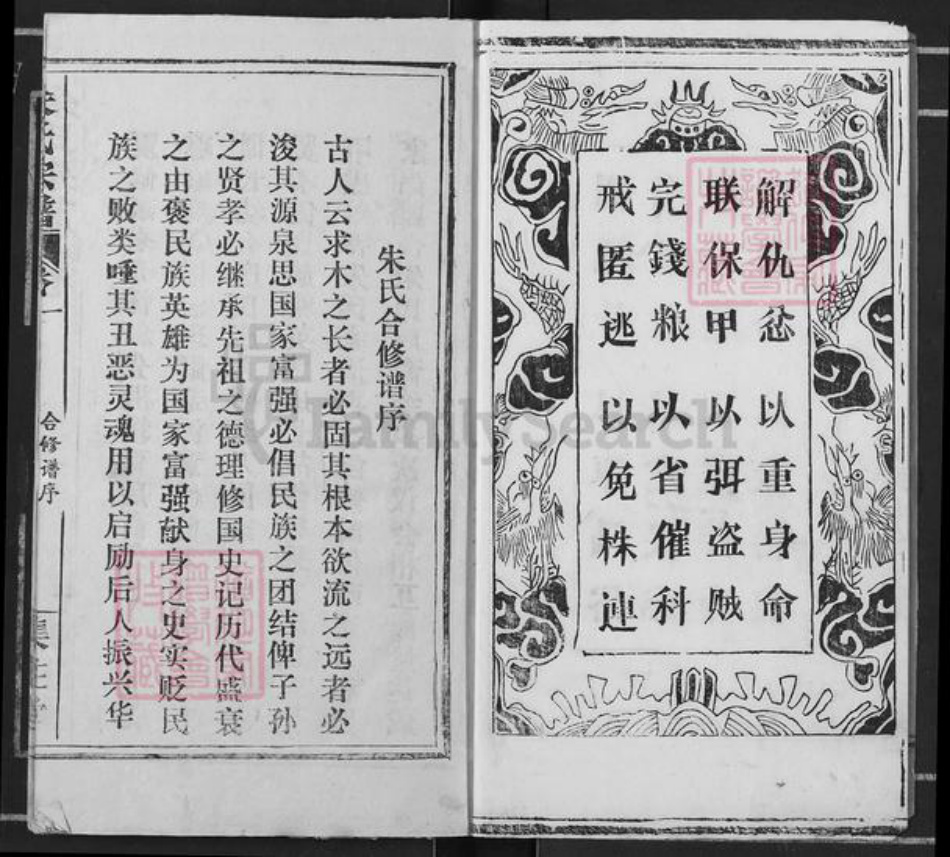 解仇忿 以重身命
联保甲 以弭盗贼
完錢粮 以省催科
戒匿逃 以免株連
朱氏合修谱序
古人云求木之长者必固其根本欲流之远者必
浚其源泉思国家富强必倡民族之团结俾子孙
之贤孝必继承先祖之德理修国史记历代盛衰
之由褒民族英雄为国家富强献身之史实贬民
族之败类唾其丑恶灵魂用以启励后人振兴华
朱氏宗谱 卷一
合修谱序
FamilySearch